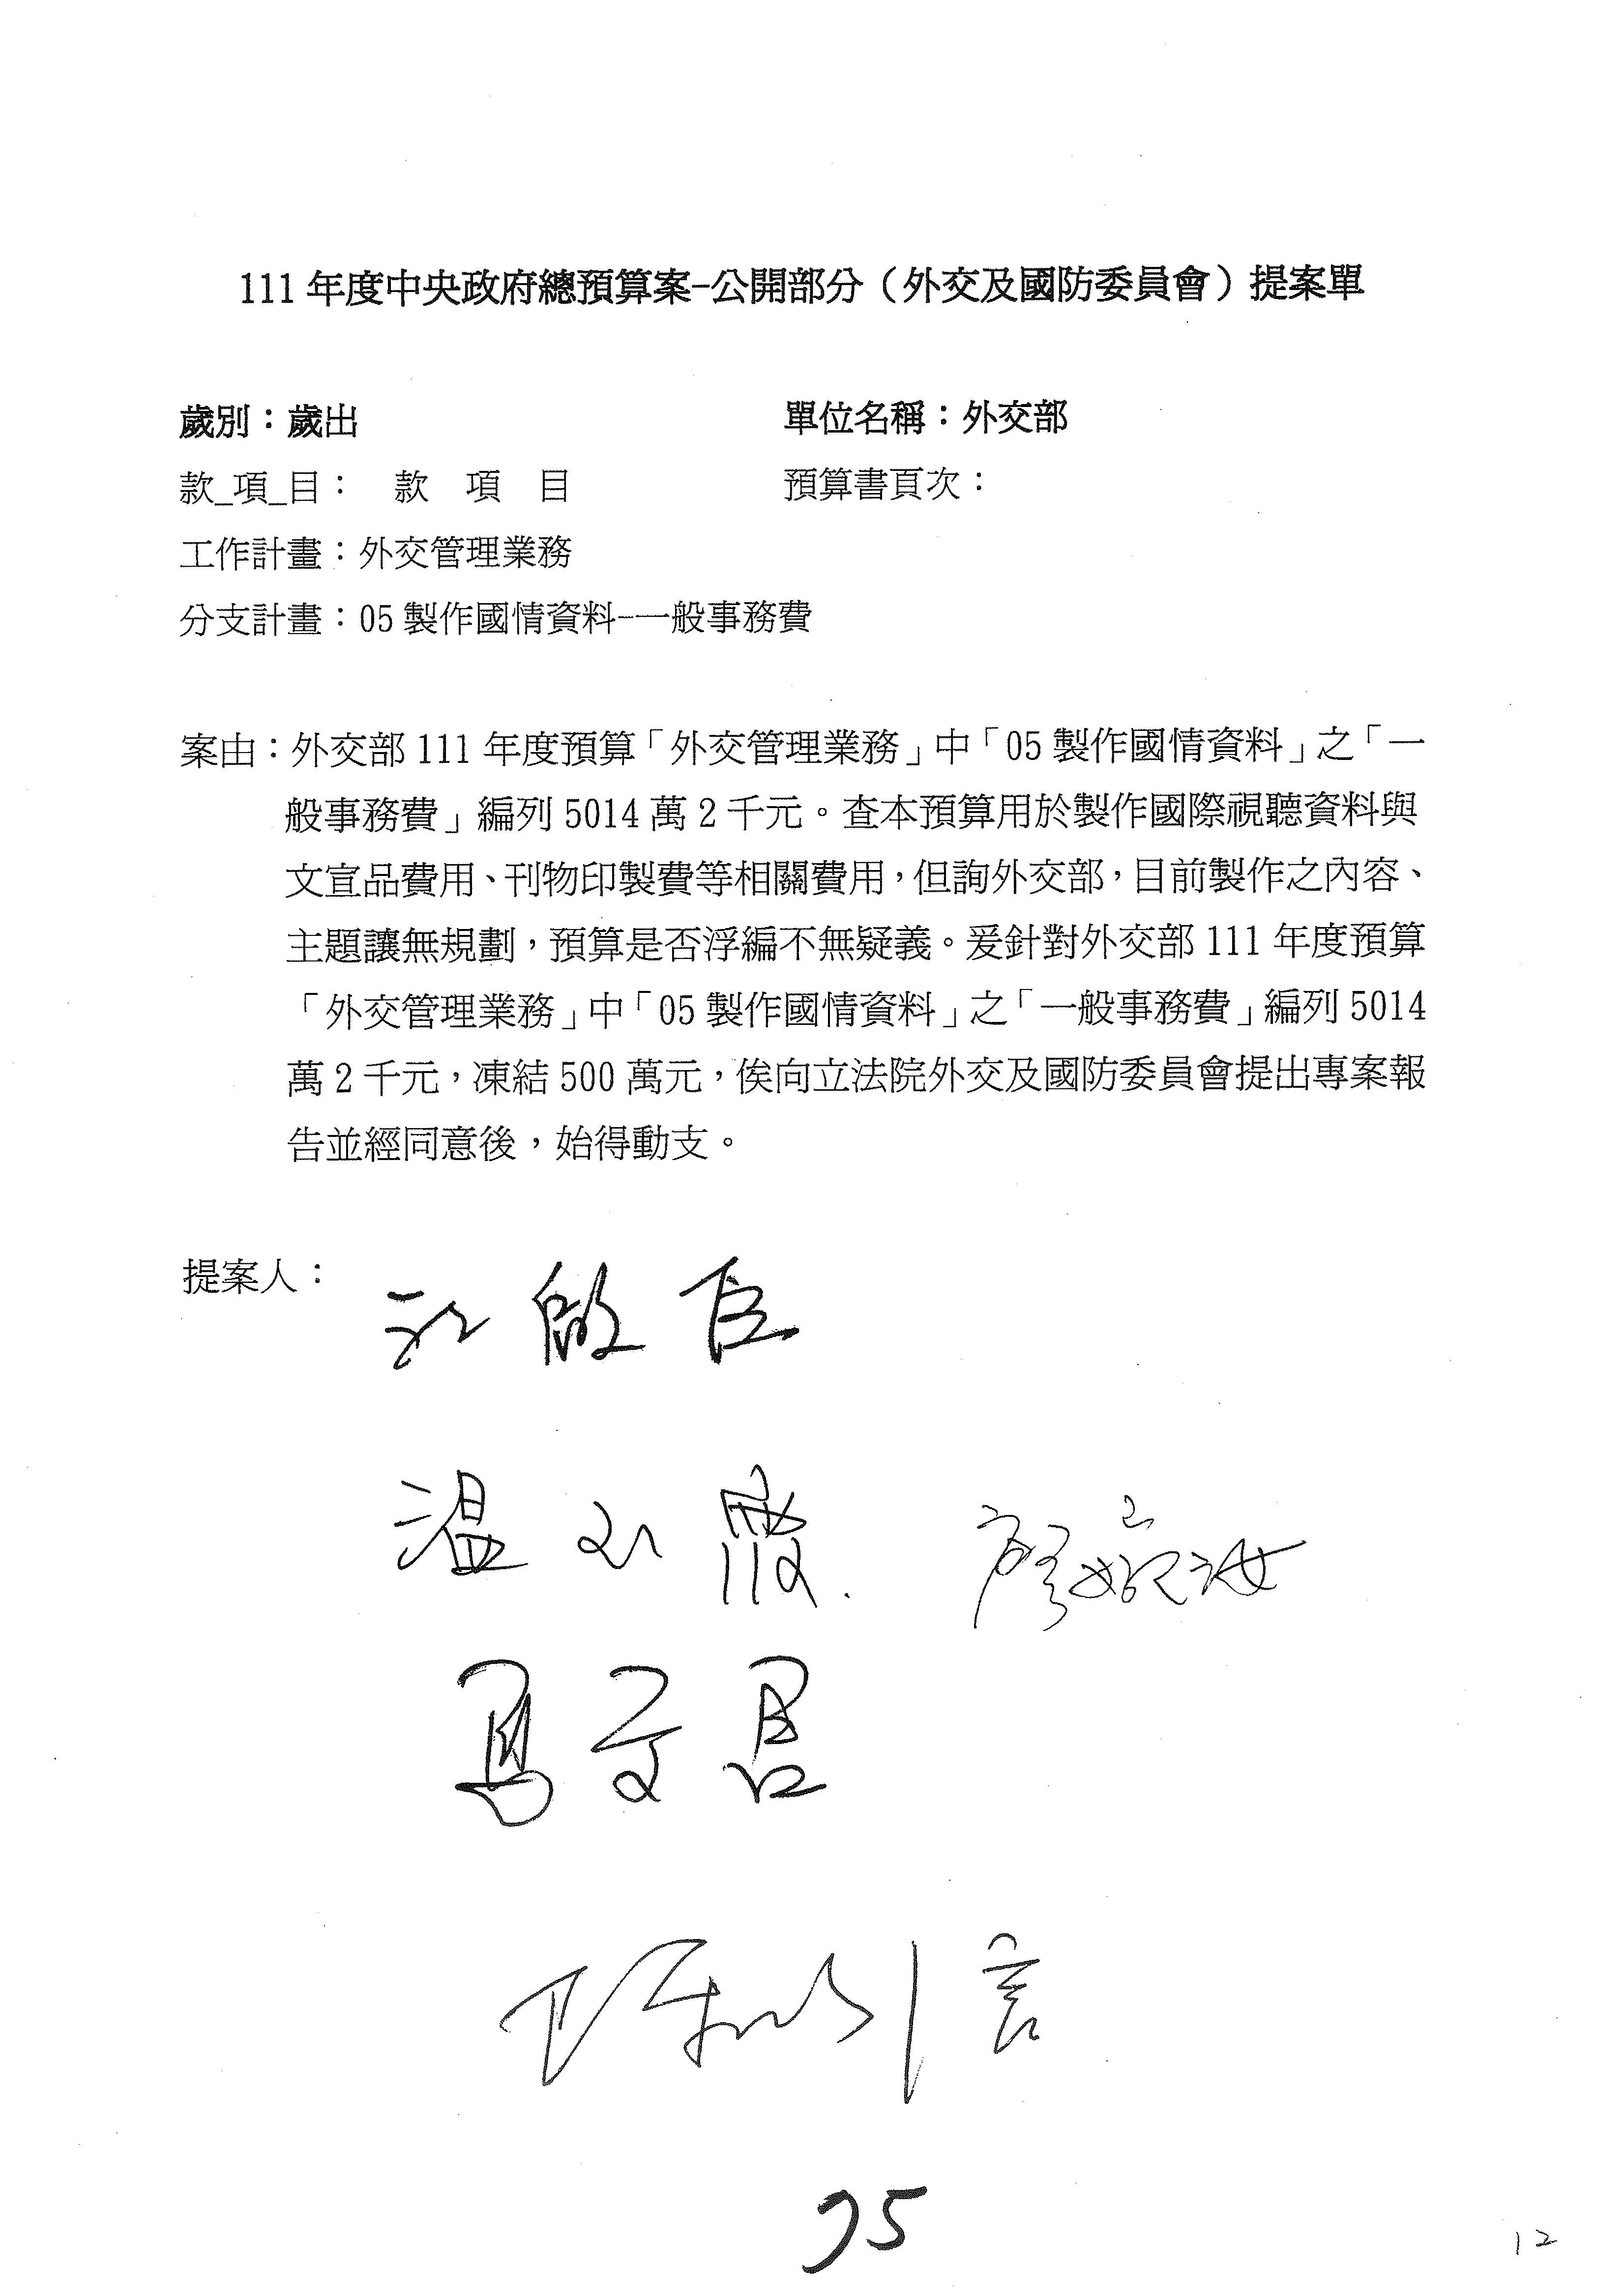 111 年度中央政府總預算案-公開部分（外交及國防委員會）提案單
歲別：歲出 單位名稱：外交部
款_項_目： 款 項 目 預算書頁次：
工作計畫：外交管理業務
分支計畫：05 製作國情資料-一般事務費
案由：外交部 111 年度預算「外交管理業務」中「05 製作國情資料」之「一
般事務費」編列 5014 萬 2 千元。查本預算用於製作國際視聽資料與
文宣品費用、刊物印製費等相關費用，但詢外交部，目前製作之內容、
主題讓無規劃，預算是否浮編不無疑義。爰針對外交部 111 年度預算
「外交管理業務」中「05 製作國情資料」之「一般事務費」編列 5014
萬 2 千元，凍結 500 萬元，俟向立法院外交及國防委員會提出專案報
告並經同意後，始得動支。
提案人：
江啟臣
温玉霞 廖婉汝
馬文君
陳以信
95
12